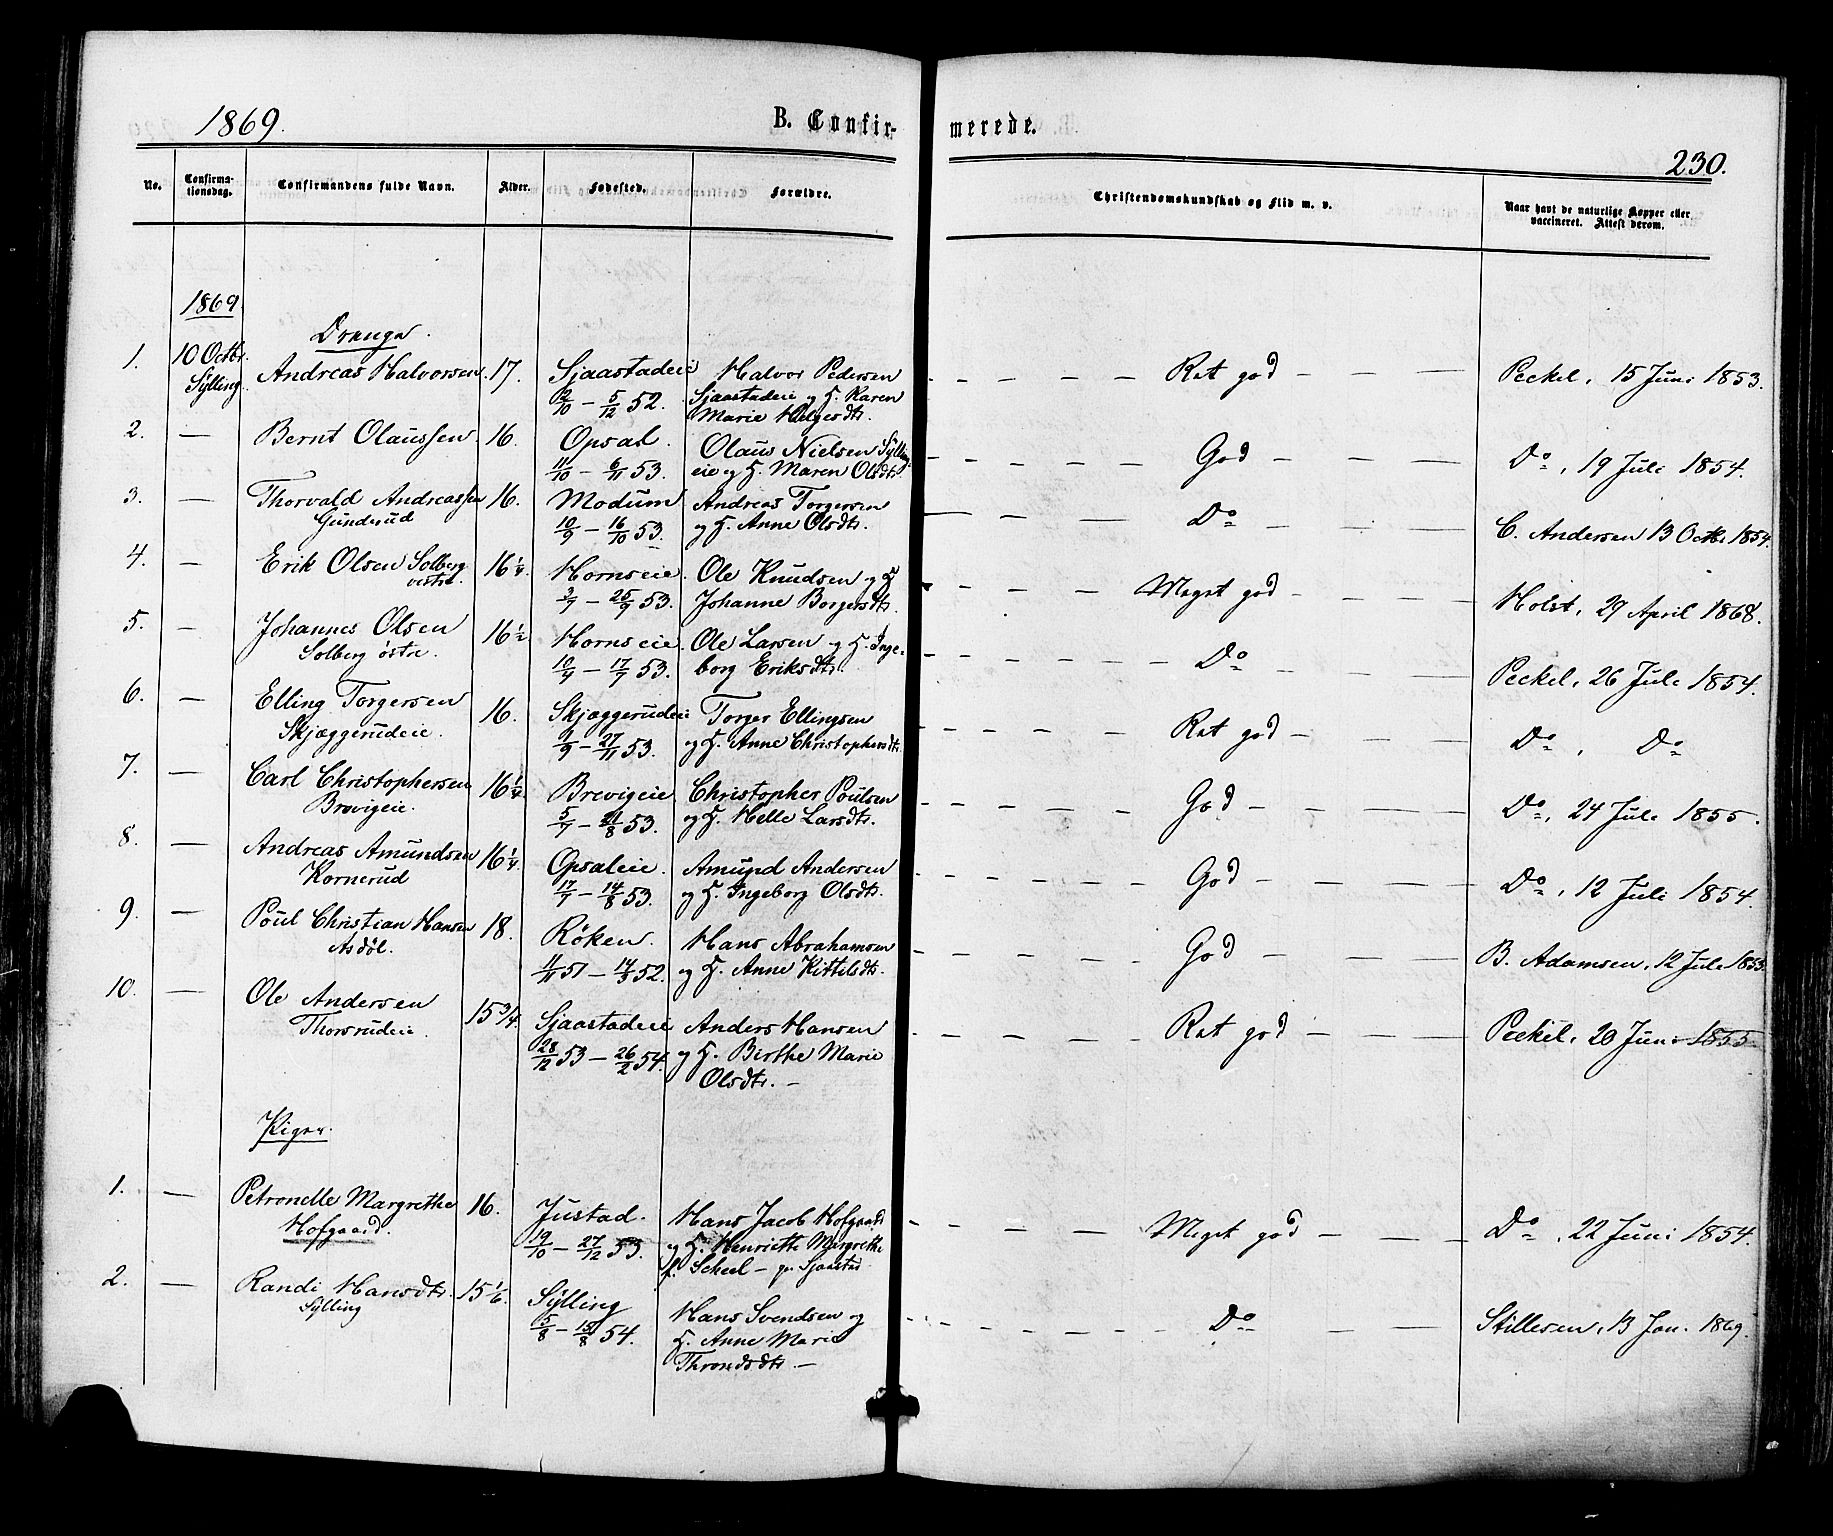 1869.
B. Confir-
merede.
230.
No.
Confirma-
tionsdag.
Confirmandens fulde Navn.
Alder.
Fødested.
Forældre.
Christendomskundskab og Flid m. v.
Naar havt de naturlige Kopper eller
vaccineret. Attest derom.
1869.
Drenge.
1. 10 Octbr. Andreas Halvorsen. 17. Sjaastadeie Halvor Pedersen — Ret god — Peckel, 15 Juni 1853.
Sylling. 2/10 – 5/12 52. Sjaastadeie og H. Karen
Marie Helgesdtr.
2. — Bernt Olaussen. 16. Opsal. Olaus Nielsen Sylling- — God — Do, 19 Juli 1854.
11/10 – 6/11 53. eie og H. Maren Olsdtr.
3. — Thorvald Andreassen 16. Modum Andreas Torgersen — Do — C. Andersen 13 Octbr 1854.
Gunderud 10/9 – 16/10 53. og H. Anne Olsdtr.
4. — Erik Olsen Solberg 16 1/4. Hornseie. Ole Knudsen og H. — Meget god — Holst, 29 April 1868.
vestre. 3/7 – 25/9 53. Johanne Borgersdtr.
5. — Johannes Olsen 16 1/2 Hornseie. Ole Larsen og H. Inge- — Do — Peckel, 26 Juli 1854.
Solberg østre. 10/4 – 17/7 53. borg Eriksdtr.
6. — Elling Torgersen 16. Skjæggerudeie Torger Ellingsen — Ret god — Do, Do
Skjæggerudeie. 1/9 – 27/11 53. og H. Anne Christophersdtr.
7. — Carl Christophersen 16 1/4. Brevigeie Christopher Poulsen — God — Do, 24 Juli 1855.
Brevigeie. 5/7 – 21/8 53. og H. Helle Larsdtr.
8. — Andreas Amundsen 16 1/4. Opsaleie. Amund Andersen — God — Do, 12 Juli 1854.
Kornerud 17/7 – 14/8 53. og H. Ingeborg Olsdtr.
9. — Poul Christian Hansen 18. Røken. Hans Abrahamsen — God — B. Adamsen, 12 Juli 1853.
Asdøl. 11/11 51 – 14/3 52. og H. Anne Kittilsdtr.
10. — Ole Andersen 15 3/4. Sjaastadeie Anders Hansen — Ret god — Peckel, 20 Juni 1855
Thorsrudeie. 28/12 53 – 26/2 54. og H. Birthe Marie
Olsdtr. —
Piger.
1. — Petronelle Margrethe 16. Justad. Hans Jacob Hofgaard — Meget god — Do, 22 Juni 1854.
Hofgaard. 19/10 – 27/12 53. og H. Henriette Margrethe
f. Scheel — Sjaastad
2. — Randi Hansdtr. 15 1/6. Sylling Hans Svendsen og — Do — Stillesen, 13 Jan. 1869.
Sylling 5/8 – 15/8 54. H. Anne Marie
Throndsdtr. —